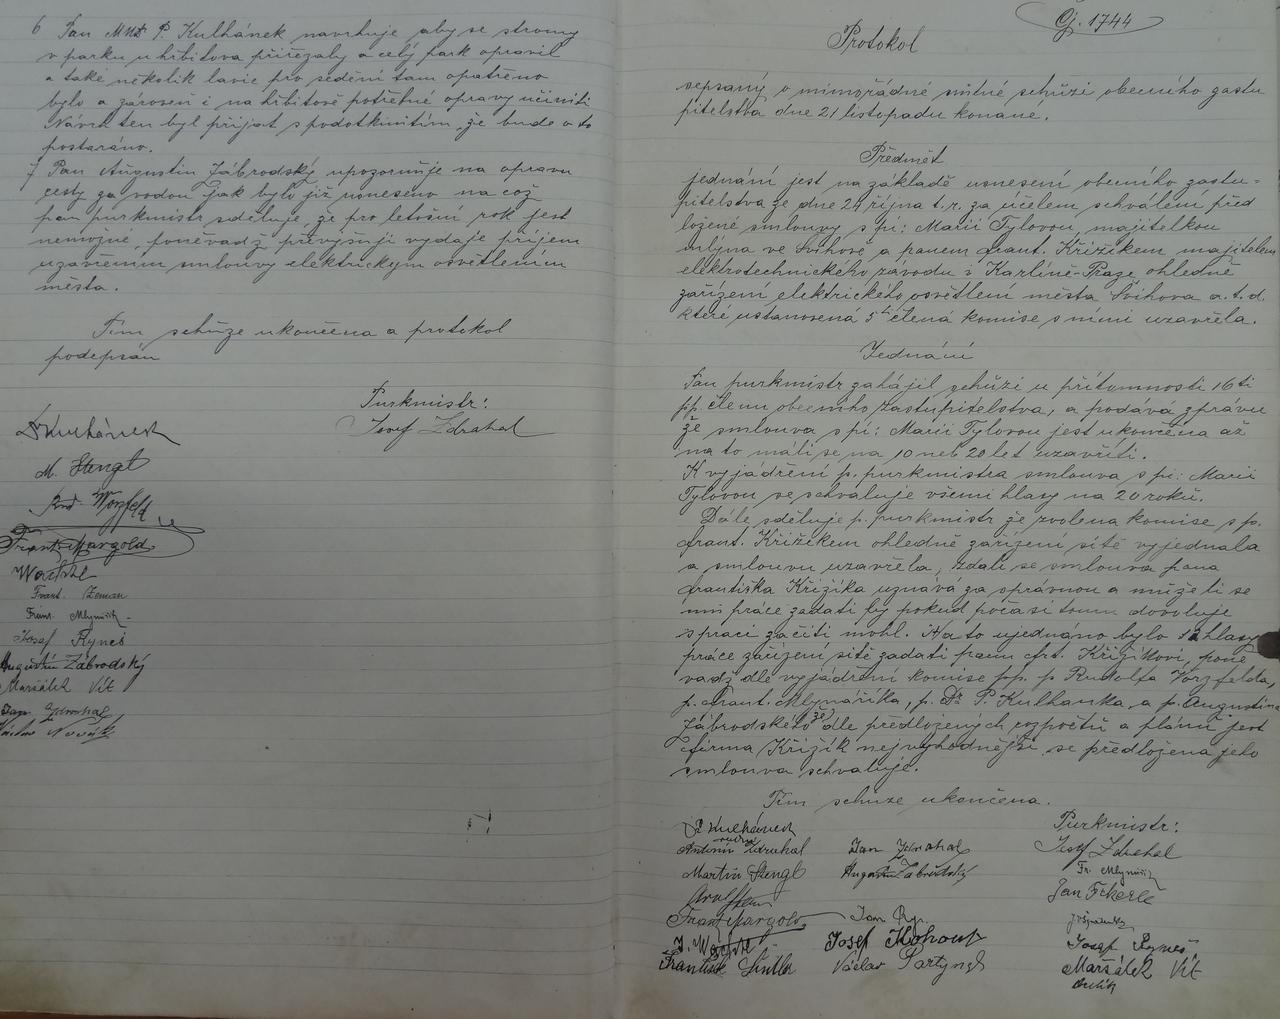 6 Pan MUDr P. Kulhánek navrhuje aby se stromy
v parku u hřbitova přiřezaly a celý park opravil
a také několik lavic pro sedění tam opatřeno
bylo a zároveň i na hřbitově potřebné opravy učiniti
Návrh ten byl přijat s podotknutím, že bude o to
postaráno.
7 Pan Augustin Zábrodský upozorňuje na opravu
cesty za vodou jak bylo již usneseno na což
pan purkmistr sděluje, že pro letošní rok jest
nemožné, poněvadž převyšují vydaje příjem
uzavřením smlouvy elektrickým osvětlením
města.
Tím schůze ukončena a protokol
podepsán
Purkmistr:
Josef Zdrahal
Dr Kulhánek
M. Stengl
Rud. Worzfeld
Frant. Margold
Wachtl
Frant. Zeman
Frant. Mlynařík
Josef Ryneš
Augustin Zábrodský
Maršálek Vít
Jan Zdrahal
Václav Novák
Čj. 1744
Protokol
sepsaný o mimořádné schůzi obecního zastu
pitelstva dne 21 listopadu konané.
Předmět
jednání jest na základě usnesení obecního zastu-
pitelstva ze dne 24 října t.r. za účelem schválení před
ložené smlouvy s pí: Marií Tylovou, majitelkou
mlýna ve Švihově a panem Frant. Křižíkem majitelem
elektrotechnického závodu v Karlíně-Praze ohledně
zařízení elektrického osvětlení města Švihova a.t.d.
které ustanovená 5ti člená komise s nimi uzavřela.
Jednání
Pan purkmistr zahájil schůzi u přítomnosti 16ti
pp. členu obecního zastupitelstva, a podává zprávu
že smlouva s pí: Marií Tylovou jest ukončena až
na to máli se na 10 neb 20 let uzavříti.
K vyjádření p. purkmistra smlouva s pí: Marií
Tylovou se schvaluje všemi hlasy na 20 roků.
Dále sděluje p. purkmistr že zvolena komise s p.
Frant. Křižíkem ohledně zařízení sítě vyjednala
a smlouvu uzavřela, zdali se smlouva pana
Františka Křižíka uznává za správnou a může li se
mu práce zadati by pokud počasí tomu dovoluje
s praci začíti mohl. Na to ujednáno bylo 12 hlasy
práce zařízení sítě zadati panu Frt. Křižíkovi, poně
vadž dle vyjádření komise pp. p Rudolfa Vorzfelda,
p. Frant. Mlynáříka, p. Dr P. Kulhanka, a p. Augustina
Zábrodského že dle předložených rozpočtů a plánů jest
firma Křižík nejvýhodnější, se předložena jeho
smlouva schvaluje.
Tím schůze ukončena.
Purkmistr:
Dr Kulhánek
Antonín Zdrahal Jan Zdrahal Josef Zdrahal
Martin Stengl Augustin Zábrodský Fr. Mlynařík
Jan Eckerle
Frant. Margold Jan
J. Wachtl Josef Kohout Josef Ryneš
František Václav Partyngl Maršálek Vít